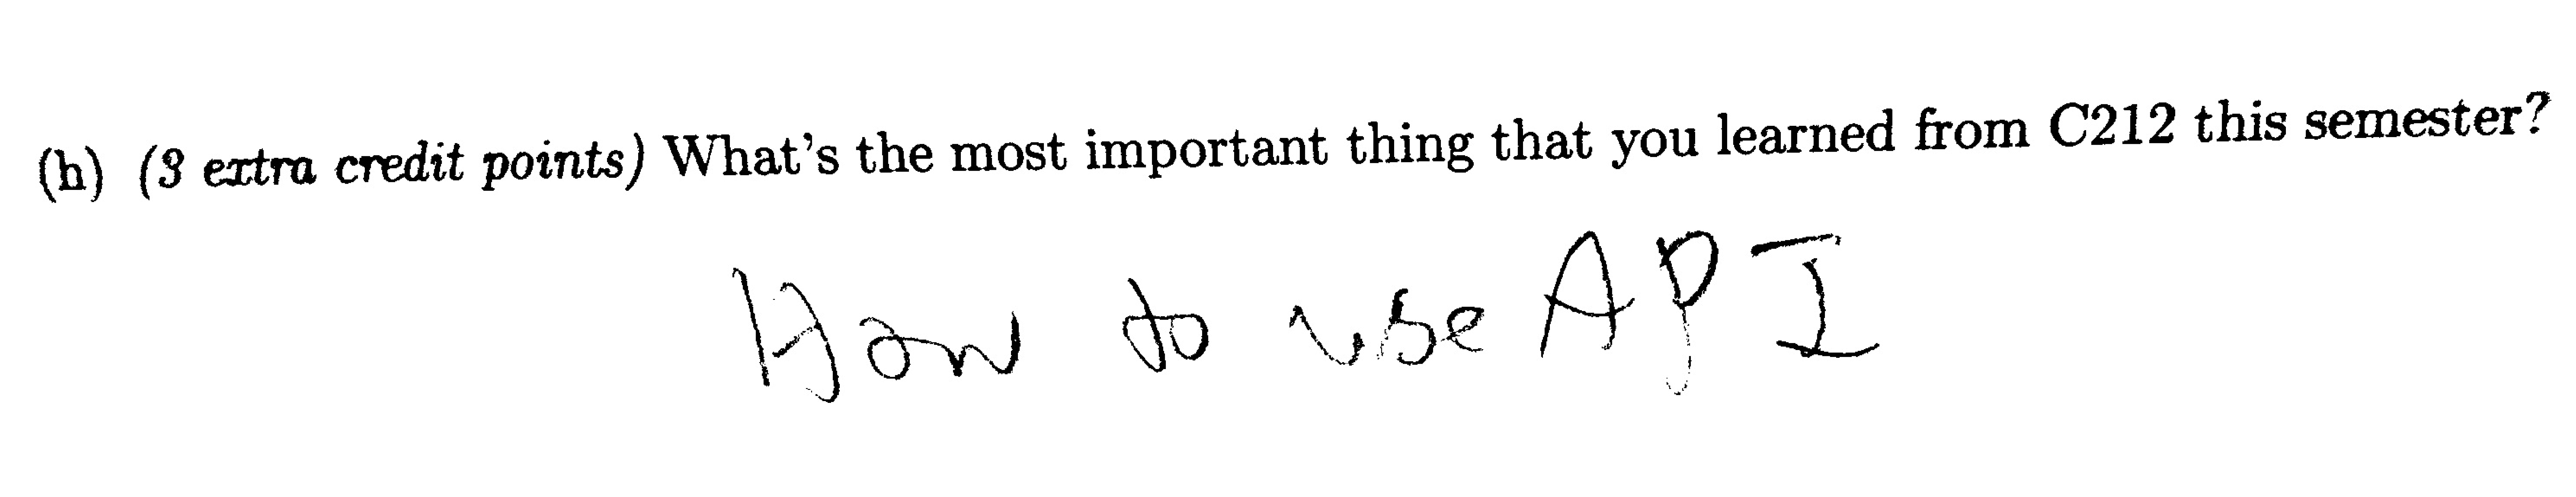 (h) (3 extra credit points) What's the most important thing that you learned from C212 this semester?
How to use API